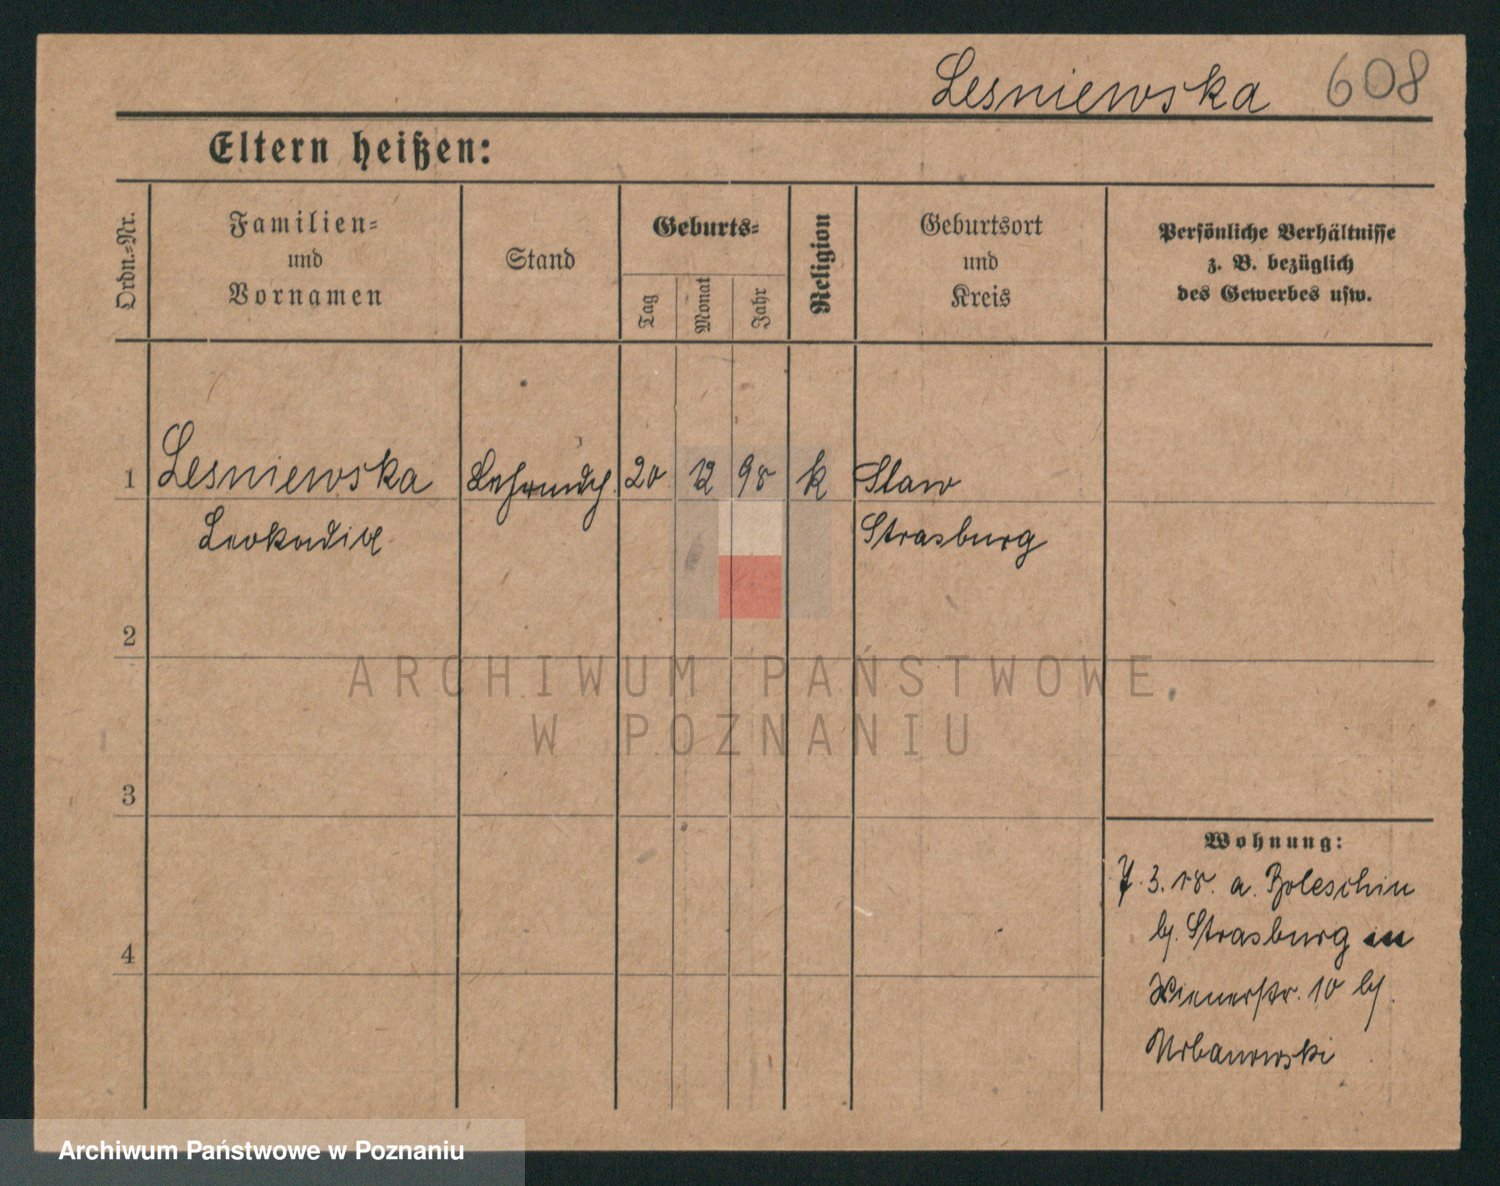 Lesniewska 608
Eltern heißen:
Ordn.-Nr.
Familien-
und
Vornamen
Stand
Geburts-
Tag
Monat
Jahr
Religion
Geburtsort
und
Kreis
Persönliche Verhältnisse
z. B. bezüglich
des Gewerbes usw.
1 Lesniewska 20 12 98 k Slaw
Leokadia Strasburg
2
ARCHIWUM PAŃSTWOWE
W POZNANIU
3
Wohnung:
7. 3. 18. a. Boleschin
b/. Strasburg in
Wienerstr. 10 b/.
Urbanowski
4
Archiwum Państwowe w Poznaniu